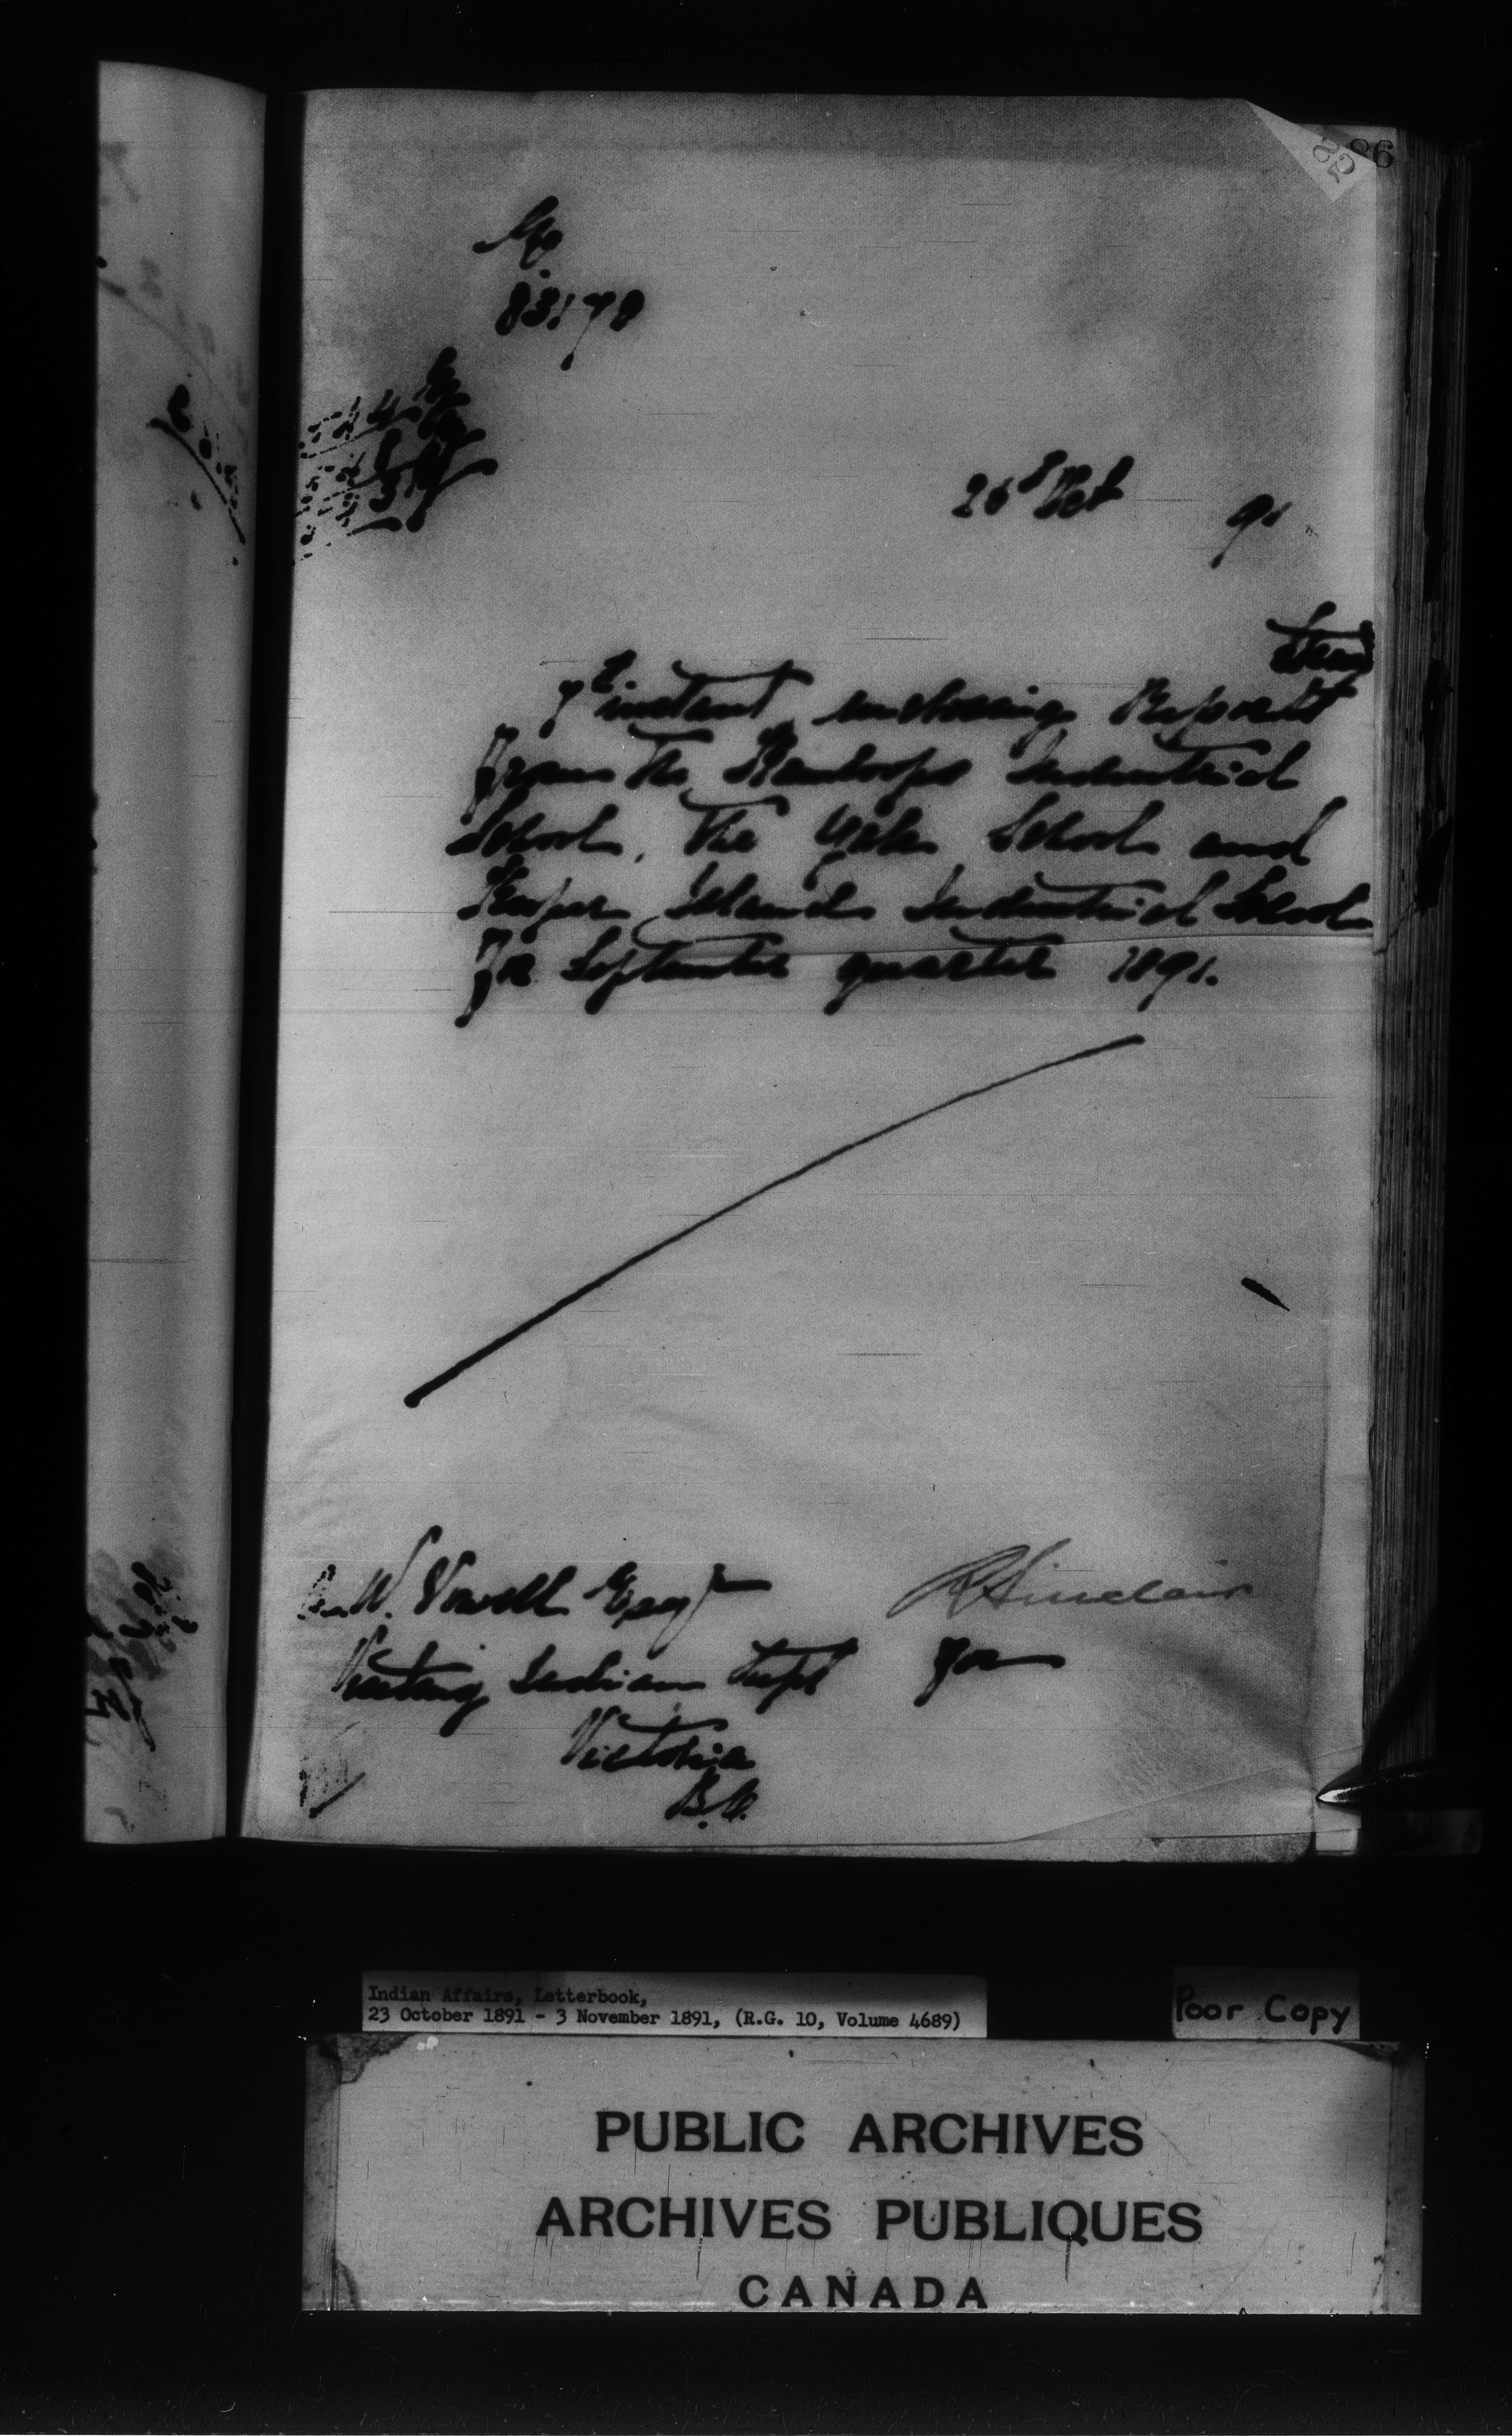 86
82
83178
Oct 91
7th instant enclosing Reports
from the Kamloops Industrial
School, The Yale School and
Kuper Island Industrial School
for September quarter 1891.
W. Vowell Esqr
R Sinclair
Visiting Indian Supt for
Victoria
B.C.
Indian Affairs, Letterbook,
23 October 1891 - 3 November 1891, (R.G. 10, Volume 4689)
Poor Copy
PUBLIC ARCHIVES
ARCHIVES PUBLIQUES
CANADA